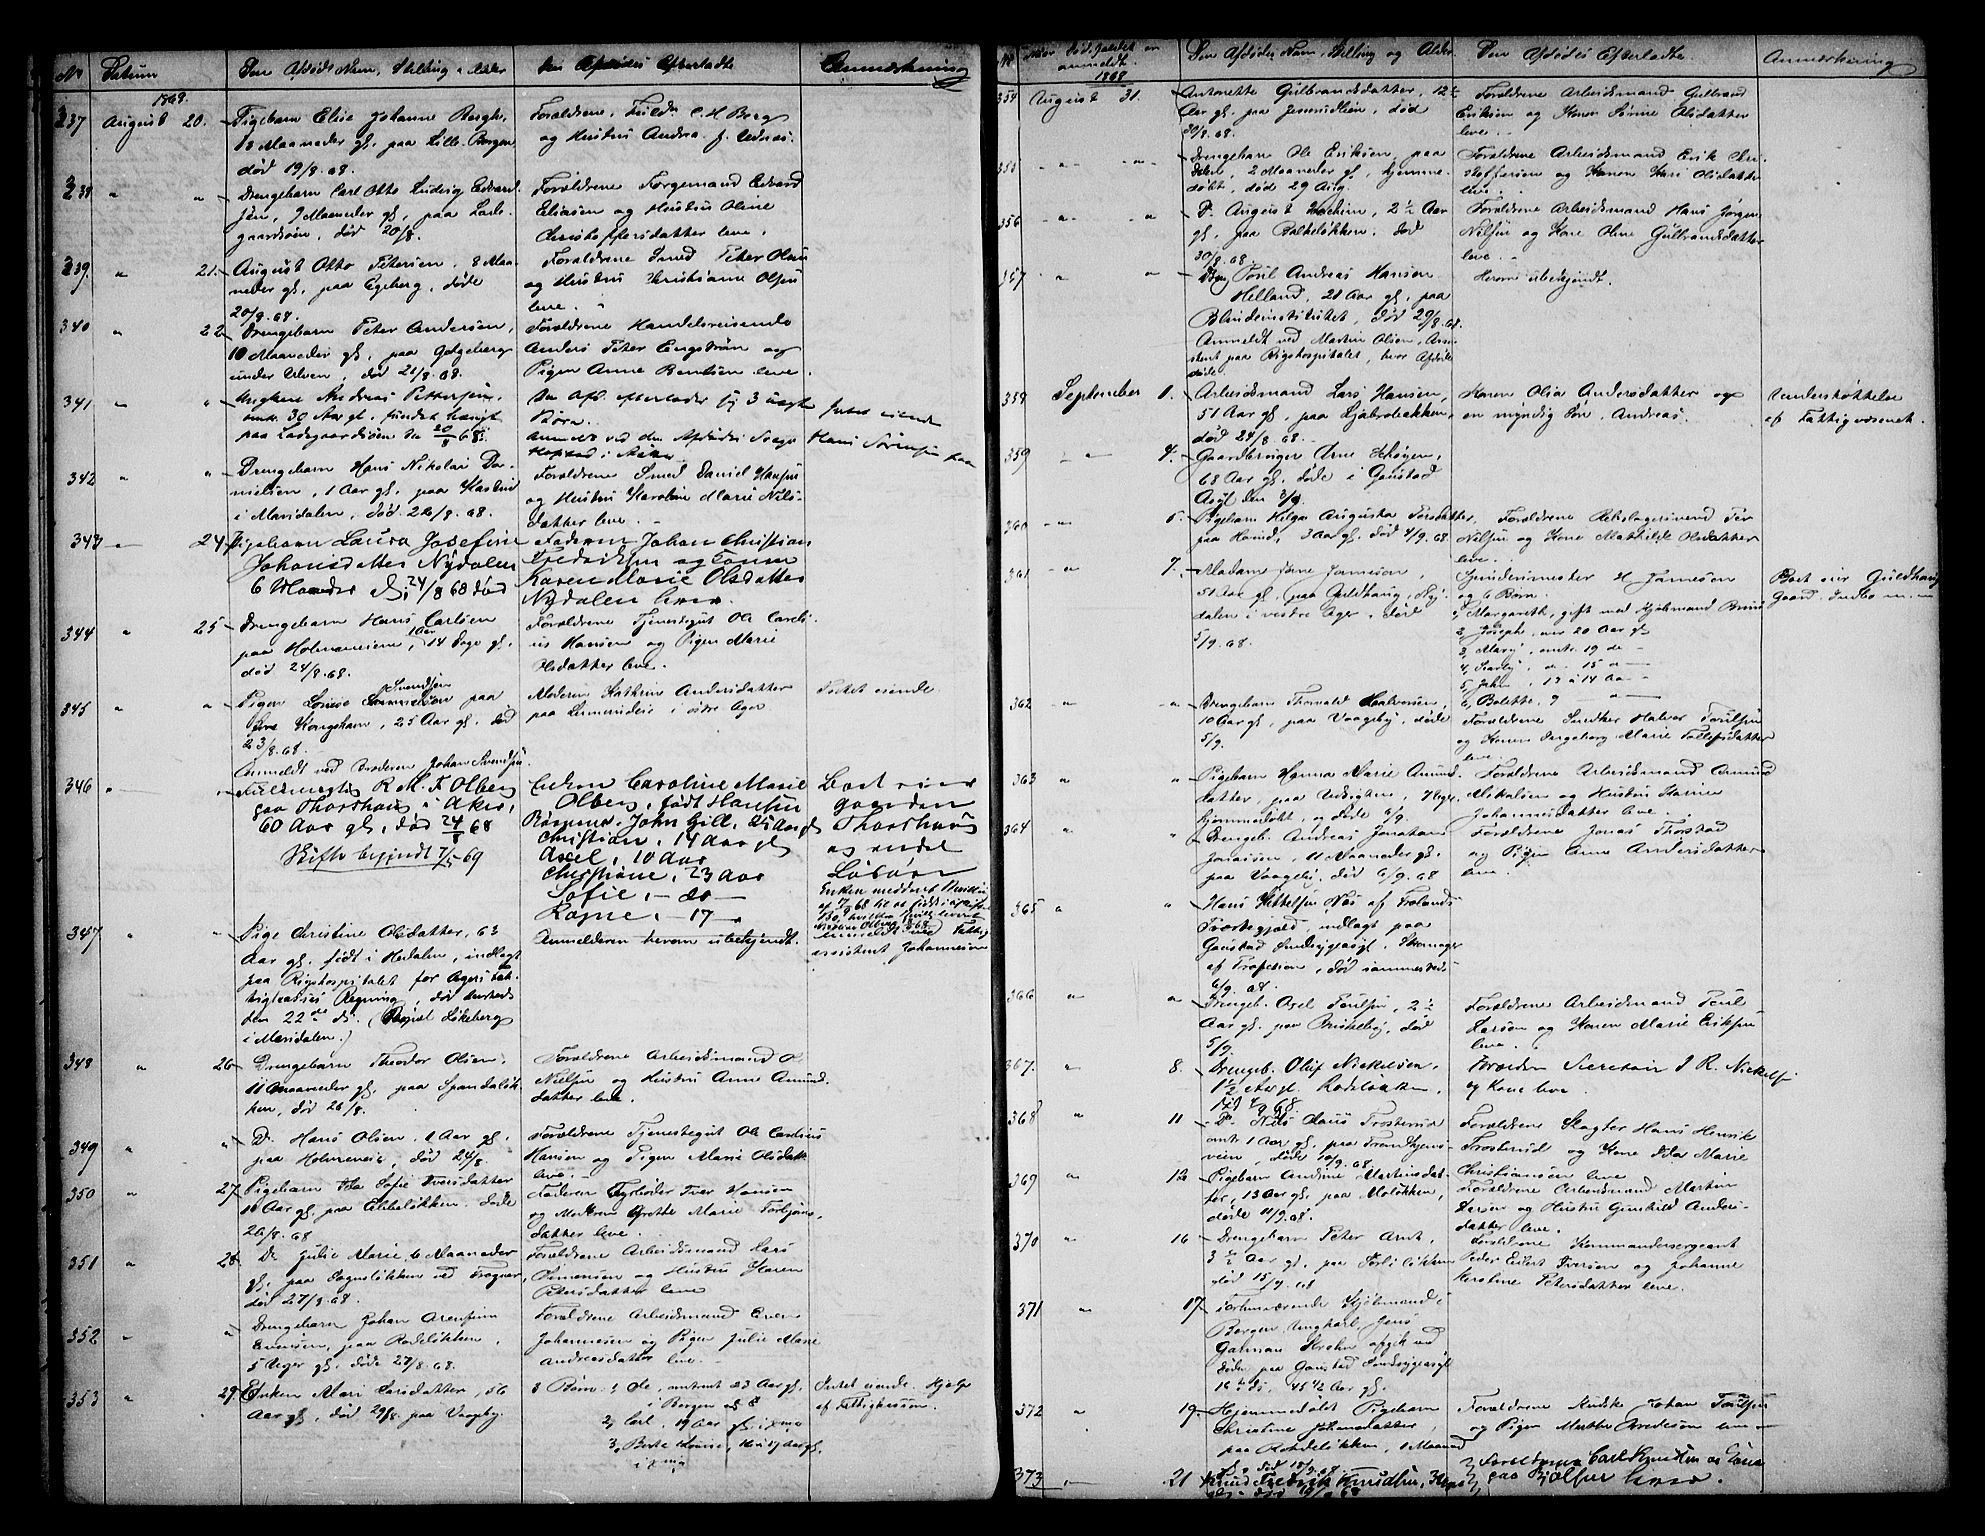 No Datum Den Afdødes Navn, Stilling & Alder Den Afdødes Efterladte Anmærkning
1868.
337 August 20. Pigebarn Elise Johanne Bergh,
8 Maaneder gl. paa Lille Borgen
død 19/8.68.
Forældrene, Fuldm. C. H. Berg
og Hustru Andrea f.
338 " " Drengebarn Carl Otto Ludvig Edvard-
sen, 9 Maaneder gl. paa Lade-
gaardsøen, død 20/8.
Forældrene Forgemand Edvard
Eliasen og Hustru Oline
Christoffersdatter leve.
339 " 21. August Otto Petersen, 8 Maa-
neder gl. paa Egeberg, døde
20/8.68.
Forældrene Smed Peter Olsen
og Hustru Christiane Olsen
leve.
340 " 22 Drengebarn Peter Andersen,
10 Maaneder gl. paa Galgeberg
under Ulven, død 21/8.68.
Forældrene Handelsreisende
Anders Peter Engstrøm og
Pigen Anne Berntsen leve.
341 " " Ungkarl Andreas Pettersen,
omtr. 30 Aar gl. fundet hængt
paa Ladegaardsøen den 20/8 68.
Den Afd. efterlader sig 3 uægte
Børn.
Anmeldt ved den Afdødes Svoger
Intet eiende
Hans Sørensen paa
342 " " Drengebarn Hans Nikolai Da-
nielsen, 1 Aar gl. paa
i Maridalen, død 22/8.68.
Forældrene Smed Daniel Hansen
og Hustru Karoline Marie Nils-
datter leve.
343 " 24 Pigebarn Laura Josefine
Johansdatter Nydalen
6 Maaneder gl. 24/8 68 død
Faderen Johan Christian
Fredriksen og Konen
Karen Marie Olsdatter
Nydalen leve.
344 " 25 Drengebarn Hans Carlsen
paa Holmeneiene, 1 Aar 14 Dage gl.
død 24/8.68.
Forældrene Tjenestegut Ole Careli-
us Hansen og Pigen Marie
Olsdatter leve.
345 " " Pigen Lovise Svendsen paa
Kongshavn, 25 Aar gl. død
23/8.68.
Anmeldt ved Broderen Johan Svendsen.
Moderen Kathrine Andersdatter
paa i østre Ager
Intet eiende.
346 " " Fuldmægtig R. M. F. Olberg
paa Thorshaug i Aker,
60 Aar gl., død 24/8 68
Skifte begyndt 7/5 69
Enken Caroline Marie
Olberg, født Hansen
Børnene. John Gill, 25 Aar gl
Christian, 14 Aar gl
Axel, 10 Aar
Christiane, 23 Aar
Sofie, - do -
Ragne, - 17 -
Boet eier
gaarden
Thorshaug
og andet
Løsøre
347 " " Pige Christine Olsdatter, 63
Aar gl. født i Hedalen, indlagt
paa Rigshospitalet for Agers Fat-
tigkasses Regning, død dersteds
den 22de ds. ( Løkeberg
i Maridalen.)
Anmelderen herom ubekjendt.
Anmeldt ved Fattig-
assistent Johannesen
348 " 26 Drengebarn Theodor Olsen,
11 Maaneder gl. paa Spandaløk-
ken, død 26/8.
Forældrene Arbeidsmand O.
Nielsen og Hustru Anne Amund-
datter leve.
349 " " Do. Hans Olsen, 1 Aar gl.
paa Holmeneie, død 24/8
Forældrene Tjenestegut Ole Carelius
Hansen og Pigen Marie Olsdatt.
leve.
350 " 27 Pigebarn Ida Sofie Iversdatter
11 Aar gl. paa Ekkeløkken, døde
26/8.68
Faderen Fyrbøder Iver Hansen
og Moderen Grethe Marie Torbjørns-
datter leve.
351 " 28 Do Julie Marie 6 Maaneder
gl. paa Sogneløkken ved Frogner
død 27/8.68.
Forældrene Arbeidsmand Lars
Simensen og Hustru Karen
Petersdatter leve
352 " " Drengebarn Johan Arentsinn
Evensen, paa Rodeløkken,
5 Uger gl. døde 27/8.68.
Forældrene Arbeidsmand Even
Johannesen og Pigen Julie Marie
Andreasdatter leve.
353 " 29 Enken Mari Larsdatter, 56
Aar gl., død 29/8. paa Vaageby.
3 Børn. 1, Ole, omtrent 23 Aar gl.
i Bergen
2, Carl, 19 Aar gl. hjemme
3, Berte Lovise, 16 a 17 Aar gl.
hjemme
Intet eiende. Hjelp
af Fattigkassen.
No Naar Dødsfaldet er anmeldt Den Afdødes Navn, Stilling og Alder Den Afdødes Efterladte. Anmærkning
1868
354 August 31. Antonette Gulbrandsdatter, 12 1/2
Aar gl. paa Jensruslien, død
30/8.68.
Forældrene Arbeidsmand Gulbrand
Eriksen og Konen Sørine Olsdatter
leve.
355 " " Drengebarn Ole Eriksen, paa
2 Maaneder gl., hjemme-
døbt, død 29 Aug.
Forældrene Arbeidsmand Erik Chri-
stoffersen og Konen Kari Olsdatter
leve.
356 " " Do. August Joachim, 2 1/2 Aar
gl. paa Balkeløkken. død
30/8.68.
Forældrene Arbeidsmand Hans Jørgen
Nilsen og Kone Oline Gulbrandsdatter
leve.
357 " " Poul Andreas Hansen
Helland, 21 Aar gl. paa
Blindeinstitutet, død 29/8.68.
Anmeldt ved Martin Olsen, Assi-
stent paa Rigshospitalet, hvor Afdøde
døde.
Herom ubekjendt.
358 September 1. Arbeidsmand Lars Hansen,
51 Aar gl., paa Ljabrobakken,
død 24/8.68.
Konen Olia Andersdatter og
en myndig Søn, Andreas.
Understøttelse
af Fattigvæsenet.
359 " 4. Gaardbruger Arne Schøyen,
68 Aar gl. døde i Gaustad
Asyl den 3/9.
360 " 5. Pigebarn Helga Augusta Torsdatter,
paa Hovind, 3 Aar gl. død 4/9.68.
Forældrene Rebslagersvend Tor
Nilsen og Kone Mathilde Olsdatter
leve.
361 " 7. Madame Jane Jameson,
51 Aar gl. paa Guldhaug, Ny-
dalen i vestre Aker, død
5/9.68.
Spinderimester H Jameson
og 6 Børn.
1, Margareth, gift med Kjøbmand Bruu
2, Joseph, over 20 Aar gl.
3, Mary, omtr. 19 do -
4, " 15 " -
5, John, 13 a 14 Aar -
6, Bolette, 9 " -
Boet eier Guldhaug
Gaard. Indbo m.m
362 " " Drengebarn Thorvald Halvorsen,
10 Aar gl. paa Vaageby, døde
5/9.
Forældrene Snedker Halvor Poulsen
og Konen Ingeborg Marie Tollefsdatter
leve.
363 " " Pigebarn Hanna Marie Amund-
datter, paa Vedbyhuse, 7 Uger,
hjemmedøbt, døde 6/9.
Forældrene Arbeidsmand Amund
Mikalsen og Hustru Karine
Johannesdatter leve.
364 " " Drengeb. Andreas Jonatans
Jonassen, 11 Maaneder gl.
paa Vaageby, død 6/9.68
Forældrene Jonas Thorstad
og Pigen Ane Andersdatter
leve.
365 " " Hans Kittelsen Næs af Frolands
Præstegjeld, indlagt paa
Gaustad Sindssygeasyl, Skomager
af Profession, død sammesteds
6/9.68.
366 " " Drengeb. Axel Poulsen, 2 1/2
Aar gl. paa Briskeby, død
5/9.
Forældrene Arbeidsmand Poul
Larsen og Konen Marie Eriksen
leve.
367. " 8. Drengeb. Oluf Nickelsen,
1 1/2 Aar gl. Rodeløkken,
død 7/9 68.
Forældre Secretair J. R. Nickels.
og Kone leve.
368 " 11 Do. Nils Hans Frosterud
omtr. 1 Aar gl., paa Trondhjems-
veien, døde 10/9.68
Forældrene Slagter Hans Henrik
Frosterud og Kone Ida Marie
Christiansen leve
369 " 12 Pigebarn Andrine Martinsdat-
ter, 13 Aar gl. paa Moløkken,
døde 11/9.68.
Forældrene Arbeidsmand Martin
Larsen og Hustru Gunhild Anders-
datter leve.
370 " 16 Drengebarn Peter Arnt,
3 1/2 Aar gl. paa
død 15/9.68
Forældrene Kommandersergeant
Peder Eilert Iversen og Johanne
Karoline Petersdatter leve.
371 " 17 Forhenværende Kjøbmand i
Bergen, Ungkarl, Jens
Garman Krohn afgik ved
Døden paa Gaustad Sindssygeasyl
16de ds, 45 1/2 Aar gl.
372 " 19. Hjemmedøbt Pigebarn
Christine Johansdatter,
paa Rodeløkken, 1 Maaned
gl., død 18/9.68.
Forældrene Kudsk Johan Poulsen
og Pigen Marthe Arntsen leve
373 " 21 Knud Fredrik Knudsen, 3
Forældrene Carl Knudsen og
paa Bjølsen leve.